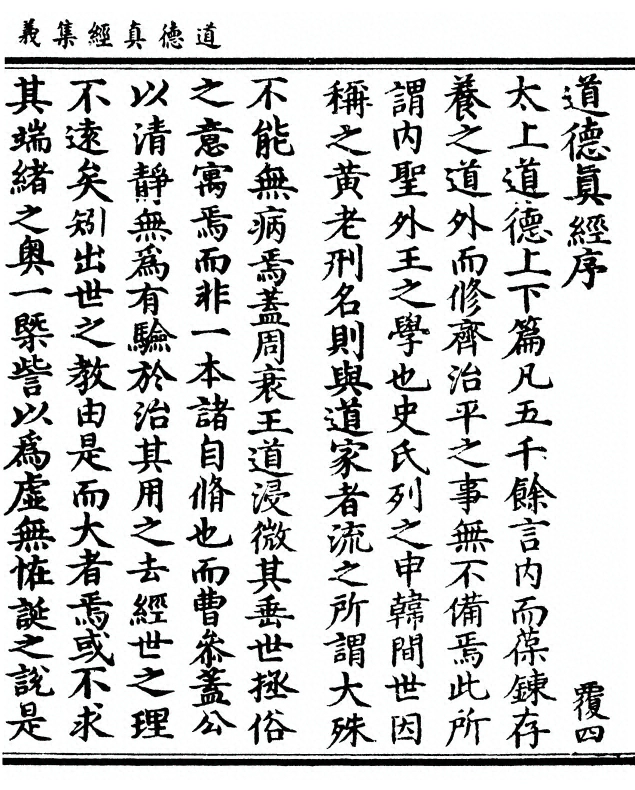 道德真經集義
道德眞經序　覆四
太上道德上下篇凡五千餘言內而葆鍊存
養之道外而修齊治平之事無不備焉此所
謂內聖外王之學也史氏列之申韓間世因
稱之黃老刑名則與道家者流之所謂大殊
不能無病焉蓋周衰王道浸微其垂世拯俗
之意寓焉而非一本諸自脩也而曹參蓋公
以清靜無爲有驗於治其用之去經世之理
不遠矣矧出世之教由是而大者焉或不求
其端緒之奧一槩訾以爲虛無恠誕之說是